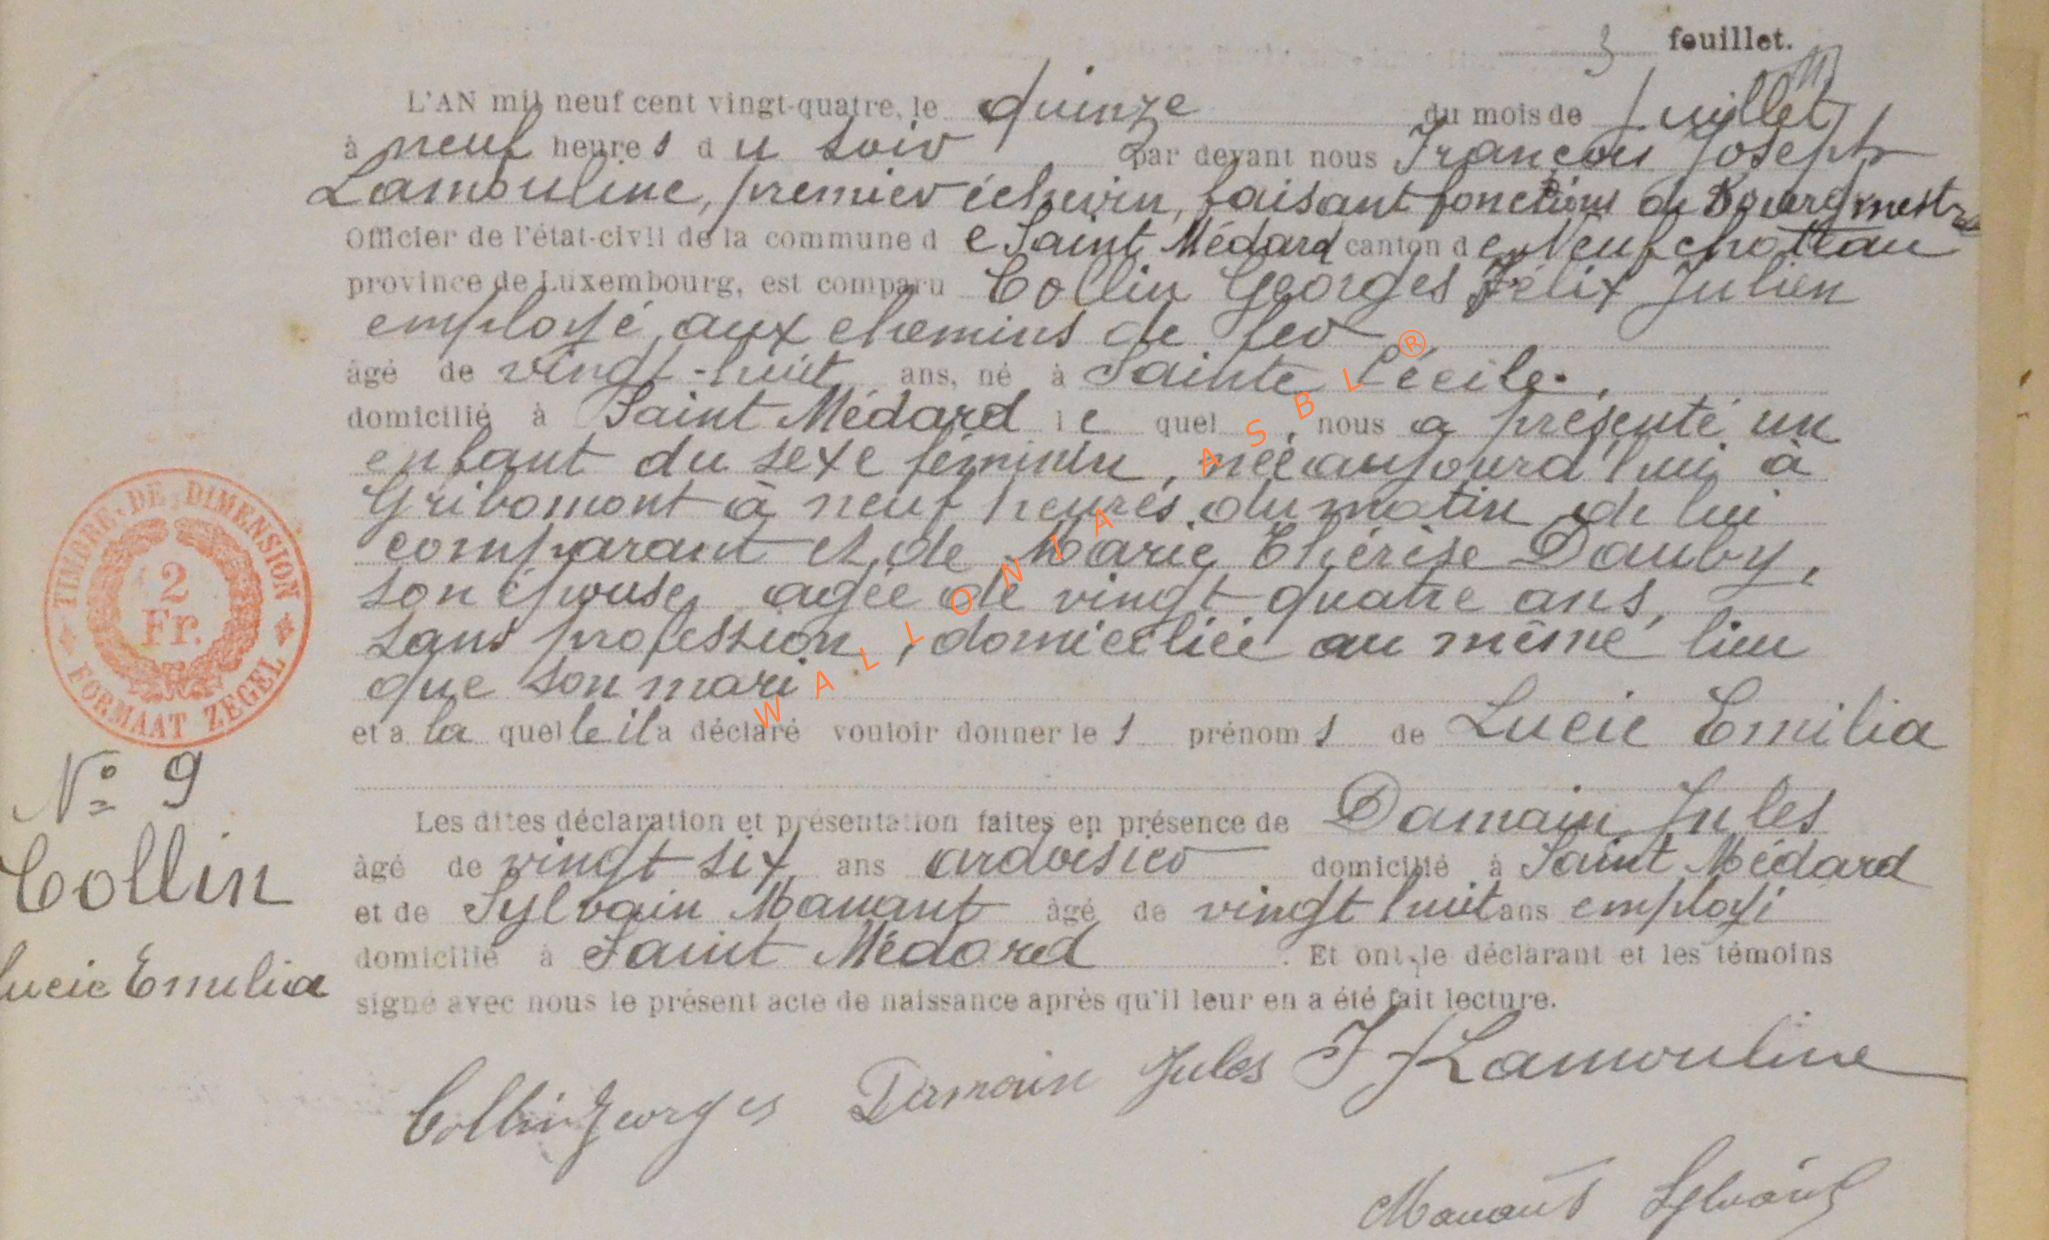 3 feuillet.
L'AN mil neuf cent vingt-quatre, le quinze du mois de Juillet
à neuf heures du soir par devant nous François Joseph
Lamouline, premier échevin, faisant fonctions de Bourgmestre
Officier de l'état-civil de la commune de Saint Médard canton de Neufchateau
province de Luxembourg, est comparu Collin Georges Félix Julien
employé aux chemins de fer
âgé de vingt-huit ans, né à Sainte Cécile.
domicilié à Saint Médard le quel, nous a présenté un
enfant du sexe féminin, née aujourd'hui à
Gribomont à neuf heures du matin de lui
comparant et de Marie Thérèse Dauby,
son épouse, agée de vingt-quatre ans,
sans profession, domiciliée au même lieu
que son mari
et a la quelle il a déclaré vouloir donner les prénoms de Lucie Emilia
Les dites déclaration et présentation faites en présence de Damain Jules
âgé de vingt six ans ardoisier domicilié à Saint Médard
et de Sylvain Manant âgé de vingt huit ans employé
domicilié à Saint Médard. Et ont le déclarant et les témoins
signé avec nous le présent acte de naissance après qu'il leur en a été fait lecture.
Collin Georges Damain Jules F J Lamouline
Manant Sylvain
TIMBRE DE DIMENSION
2
Fr.
FORMAAT ZEGEL
N° 9
Collin
Lucie Emilia
WALLONIA ASBL ®